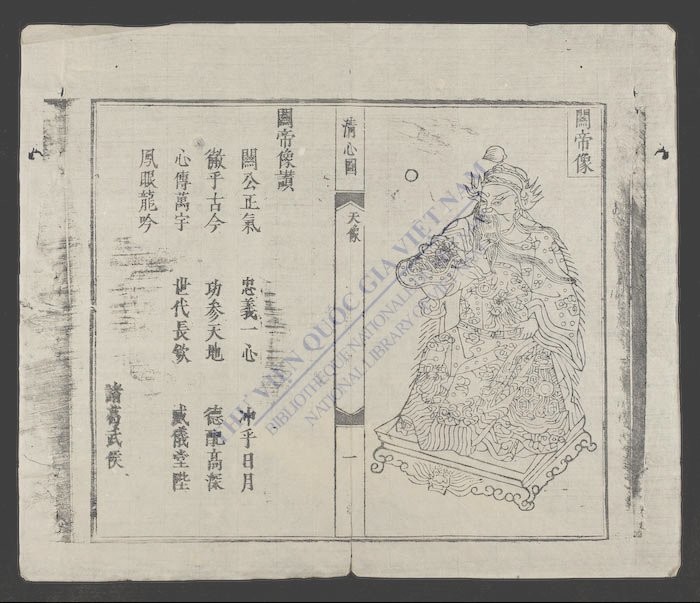 關帝像
清心圖
天像
一
關帝像讚
關公正氣 忠義一心 冲乎日月
徹乎古今 功參天地 德配高深
心傳萬字 世代長欽 威儀堂陛
鳳眼龍吟
諸葛武侯
THƯ VIỆN QUỐC GIA VIỆT NAM
BIBLIOTHÈQUE NATIONALE
NATIONAL LIBRARY OF